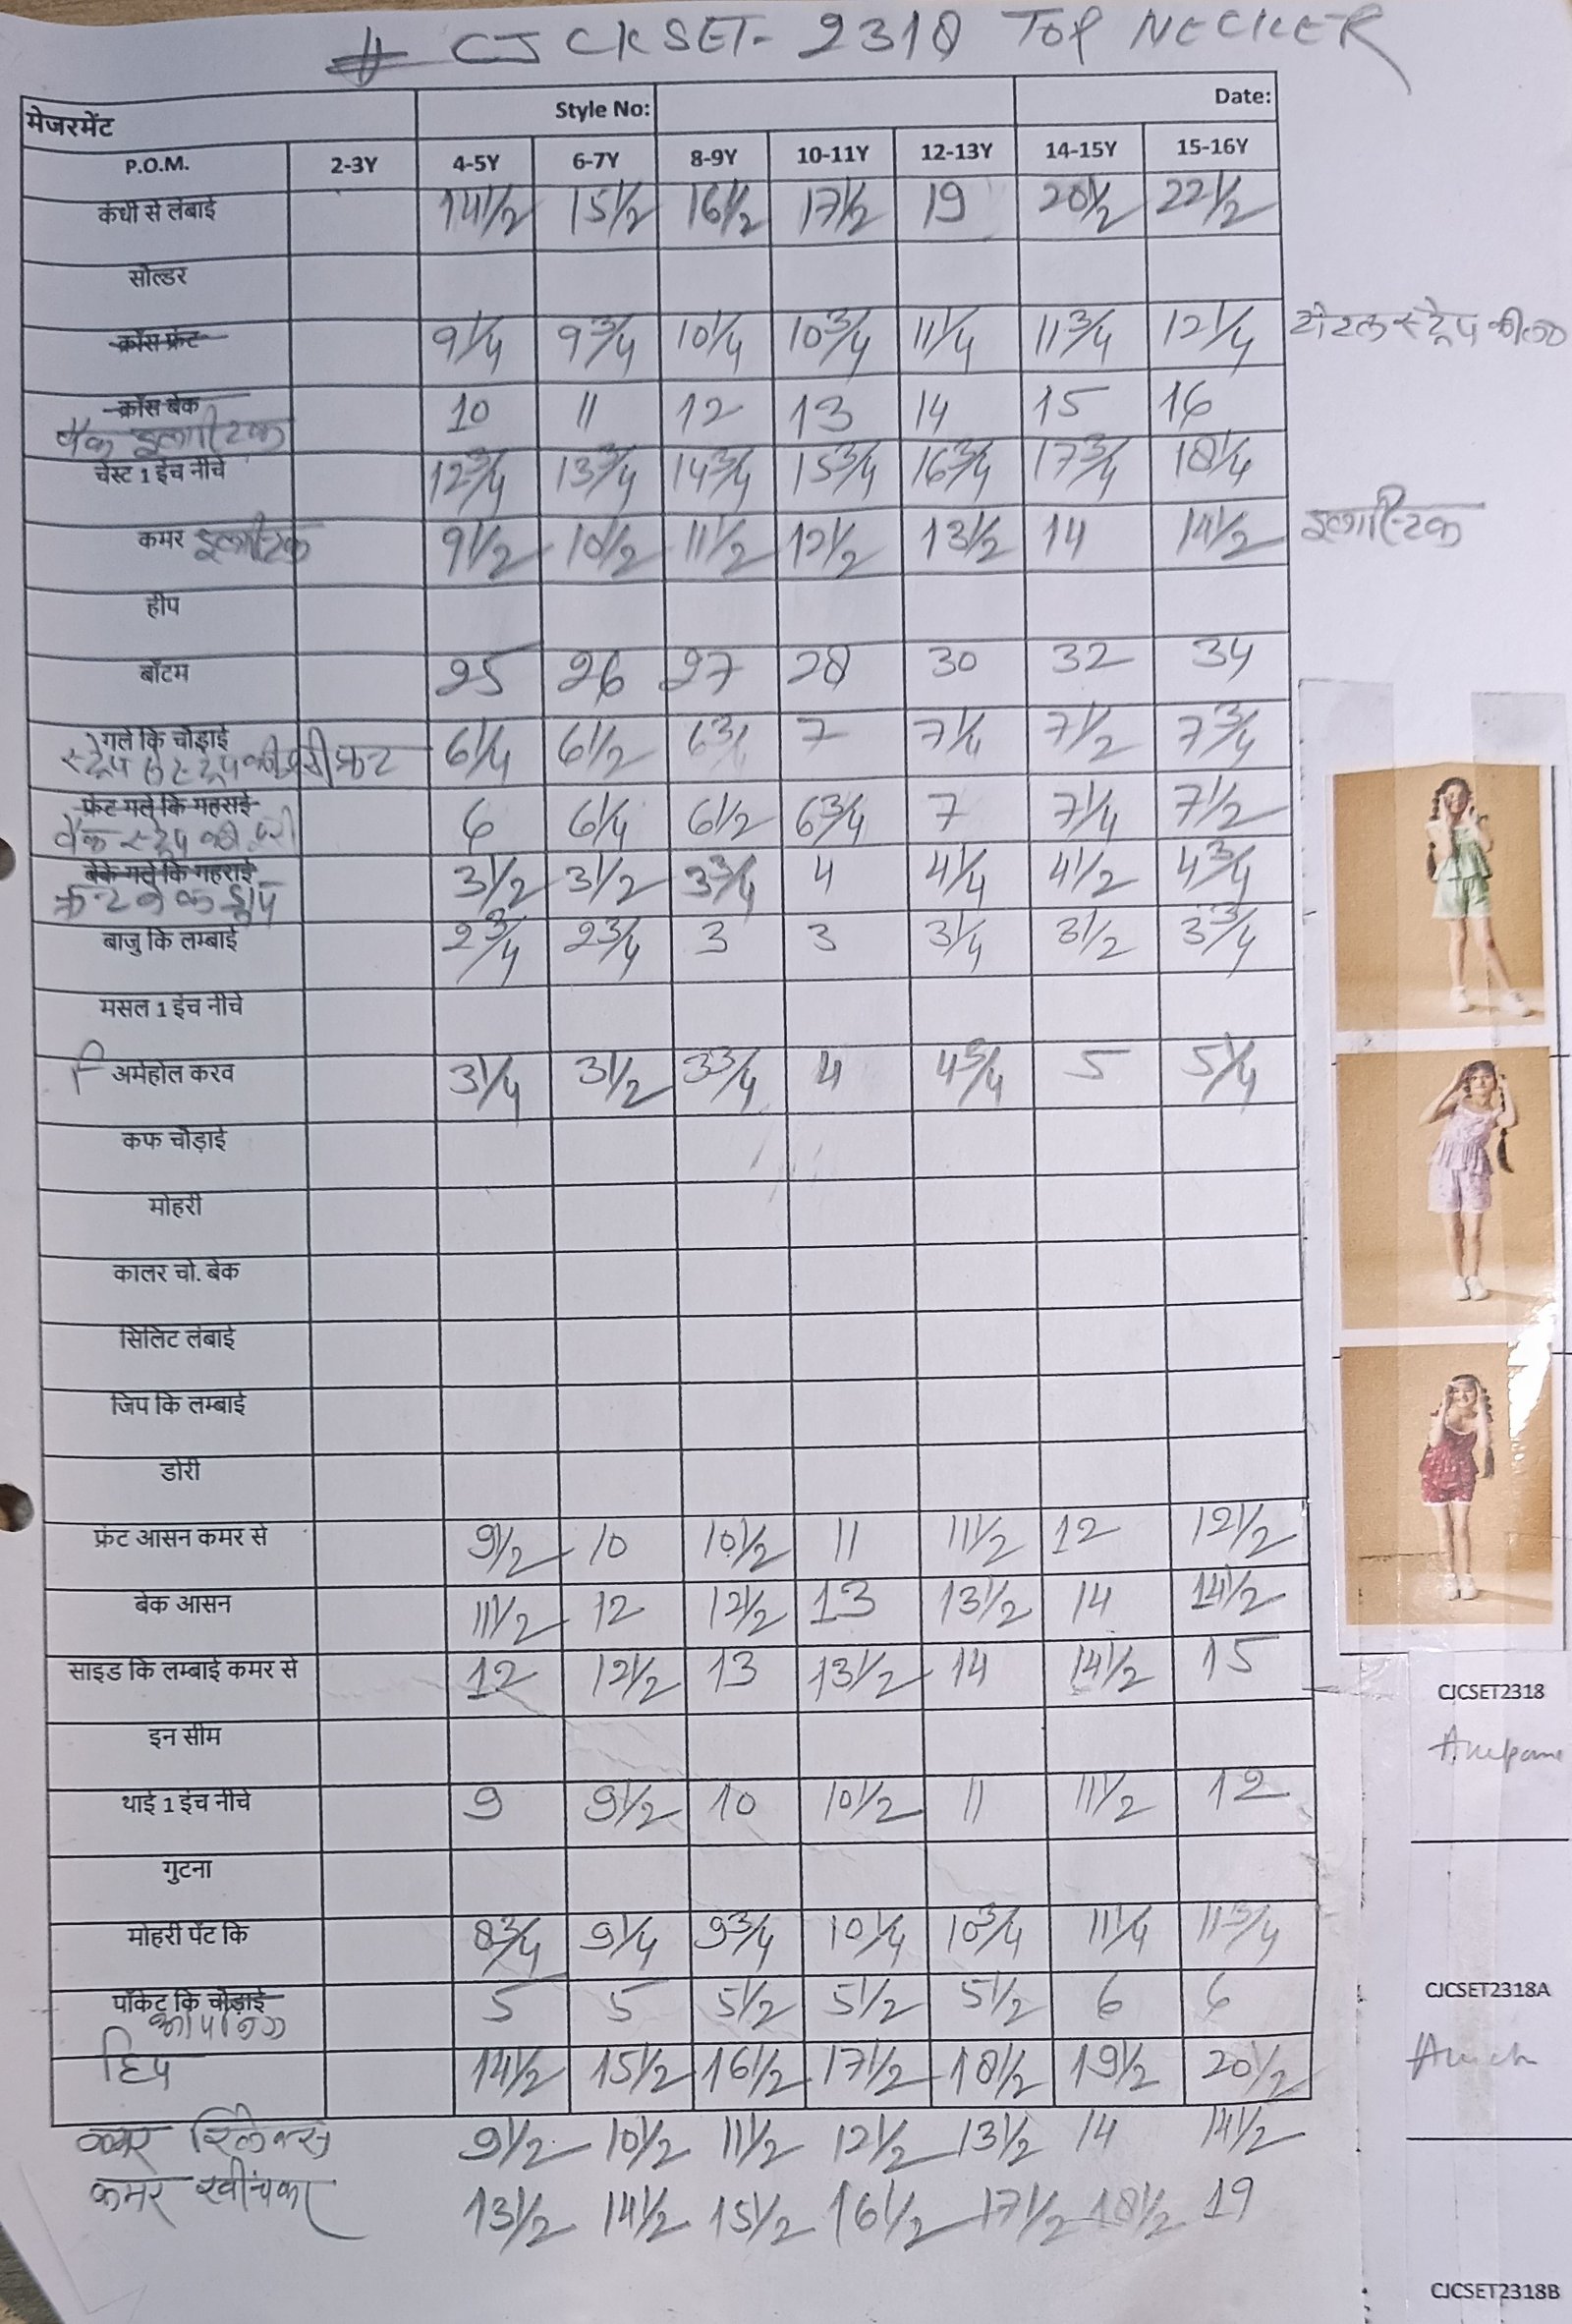 # CJCKSET- 2318 TOP NECKER
मेजरमेंट Style No: Date:
P.O.M. 2-3Y 4-5Y 6-7Y 8-9Y 10-11Y 12-13Y 14-15Y 15-16Y
कंधी से लंबाई 14 1/2 15 1/2 16 1/2 17 1/2 19 20 1/2 22 1/2
सोल्डर
क्रॉस फ्रंट 9 1/4 9 3/4 10 1/4 10 3/4 11 1/4 11 3/4 12 1/4 टोटल स्ट्रेप की
क्रॉस बेक 10 11 12 13 14 15 16
बैक इलास्टिक
चेस्ट 1 इंच नीचे 12 3/4 13 3/4 14 3/4 15 3/4 16 3/4 17 3/4 18 1/4
कमर इलास्टिक 9 1/2 10 1/2 11 1/2 12 1/2 13 1/2 14 14 1/2 इलास्टिक
हीप
बॉटम 25 26 27 28 30 32 34
गले कि चौड़ाई 6 1/4 6 1/2 6 3/4 7 7 1/4 7 1/2 7 3/4
स्ट्रेप से स्ट्रेप की दूरी फ्रंट
फ्रंट गले कि गहराई 6 6 1/4 6 1/2 6 3/4 7 7 1/4 7 1/2
बैक स्ट्रेप की दूरी
बेक गले कि गहराई 3 1/2 3 1/2 3 3/4 4 4 1/4 4 1/2 4 3/4
फ्रन्ट नेक ड्रोप
बाजु कि लम्बाई 2 3/4 2 3/4 3 3 3 1/4 3 1/2 3 3/4
मसल 1 इंच नीचे
F अर्महोल करव 3 1/4 3 1/2 3 3/4 4 4 3/4 5 5 1/4
कफ चौड़ाई
मोहरी
कालर चो. बेक
सिलिट लंबाई
जिप कि लम्बाई
डोरी
फ्रंट आसन कमर से 9 1/2 10 10 1/2 11 11 1/2 12 12 1/2
बेक आसन 11 1/2 12 12 1/2 13 13 1/2 14 14 1/2
साइड कि लम्बाई कमर से 12 12 1/2 13 13 1/2 14 14 1/2 15
CJCSET2318
इन सीम
थाई 1 इंच नीचे 9 9 1/2 10 10 1/2 11 11 1/2 12
गुटना
मोहरी पेंट कि 8 3/4 9 1/4 9 3/4 10 1/4 10 3/4 11 1/4 11 3/4
पॉकेट कि चौड़ाई 5 5 5 1/2 5 1/2 5 1/2 6 6
CJCSET2318A
हिप 14 1/2 15 1/2 16 1/2 17 1/2 18 1/2 19 1/2 20 1/2
कमर रिलेक्स 9 1/2 10 1/2 11 1/2 12 1/2 13 1/2 14 14 1/2
कमर खींचकर 13 1/2 14 1/2 15 1/2 16 1/2 17 1/2 18 1/2 19
CJCSET2318B